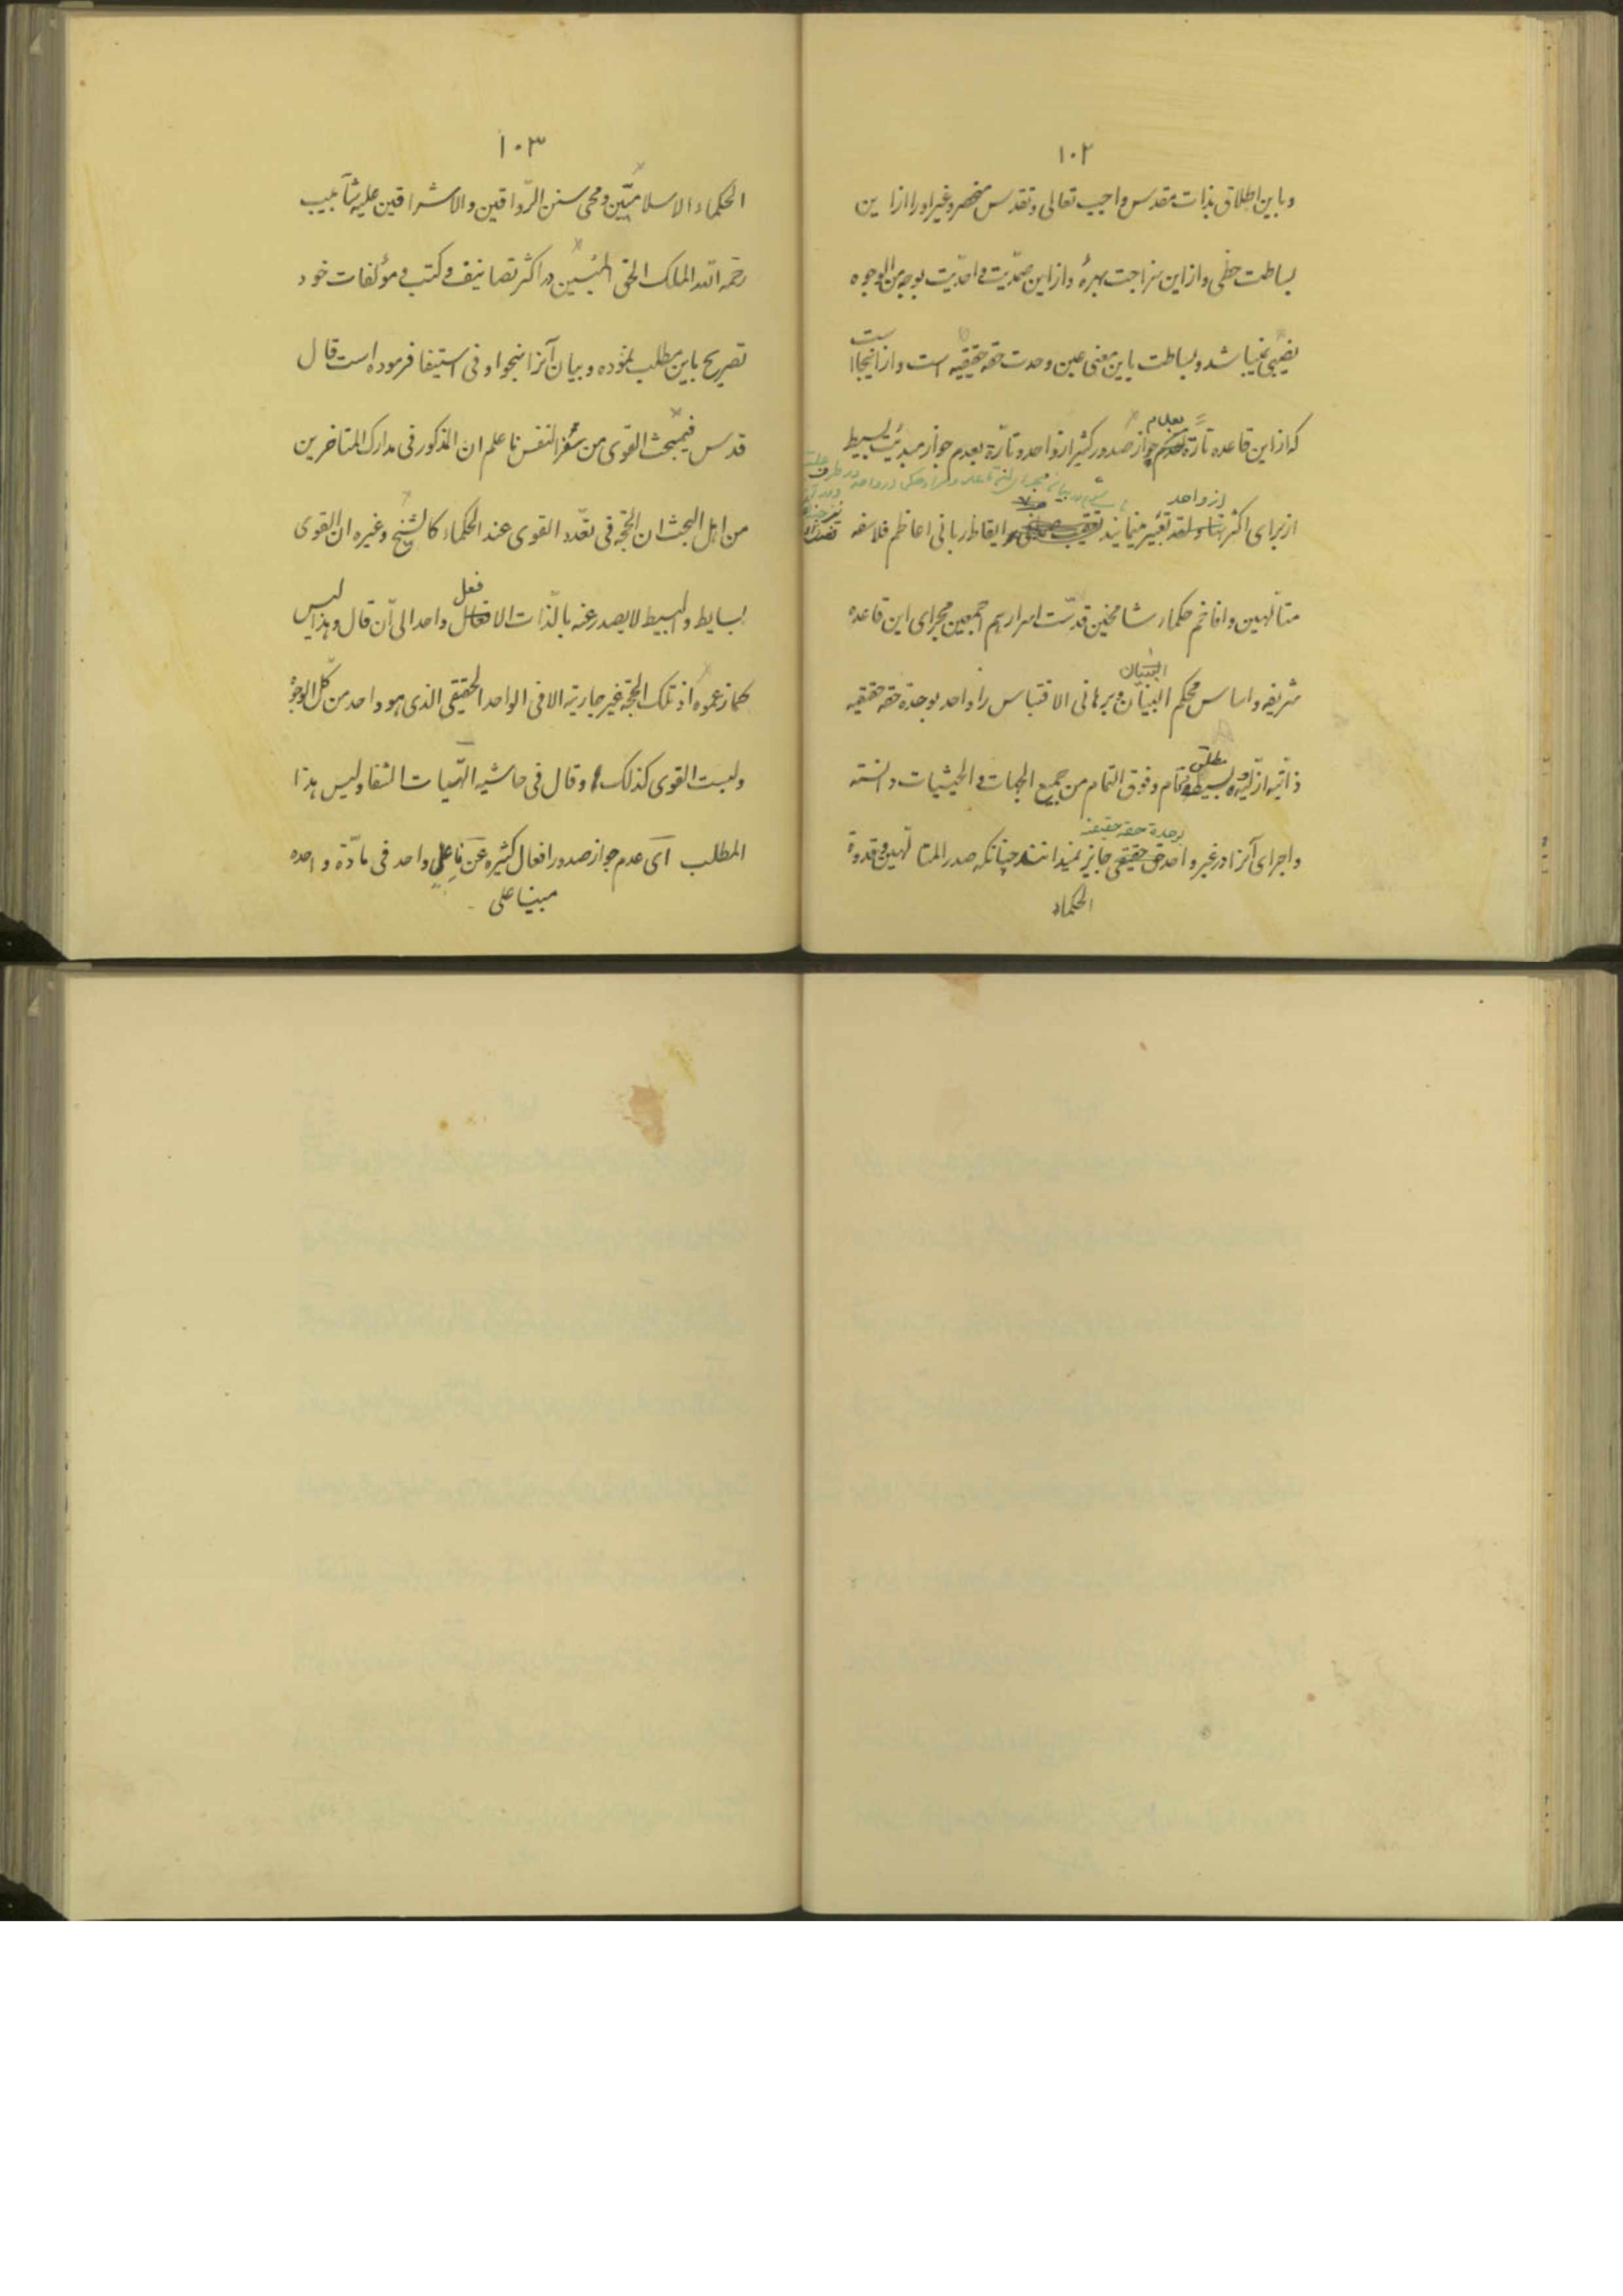 ١٠٢
و باین اطلاق بذات مقدس واجب تعالی و تقدس منحصر و غیر او را از این
بساطت حظی و از این سزاجت بهرهٔ و از این صمدّیت و احدّیت بوجه من الوجوه
نصیبی نمیباشد و بساطت باین معنی عین وحدت حقه حقیقیه است و از اینجا است
که از این قاعده تارة بعدم جواز صدور کثیر از واحد و تارّة بعدم جواز مبدئیت بسیط
از واحد
از برای اکثر تعبیر مینمایند ایقاظ ربانی اعاظم فلاسفه
متألهین و افاخم حکماء شامخین قدّست اسرارهم اجمعین مجرای این قاعده
البنیان
شریفه و اساس محکم البنیان و برهانی الاقتباس را واحد بوحدة حقه حقیقیه
مطلق
ذاتیه ازلیّه بسیط تام و فوق التمام من جمیع الجهات و الحیثیات دانسته
بوحدة حقه حقیقیه
و اجرای آنرا در غیر واحد حقیقی جایز نمیدانند چنانکه صدر المتألّهین و قدوة
الحکماء
١٠٣
الحکماء الاسلامیّین و محی سنن الرّواقین و الاشراقین علیه شآبیب
رحمه الله الملک الحق المبین در اکثر تصانیف و کتب و مؤلفات خود
تصریح باین مطلب نموده و بیان آنرا بنحو اوفی استیفا فرموده است قال
قدس فی مبحث القوی من سفر النفس فاعلم ان المذکور فی مدارک المتاخرین
من اهل البحث ان الحجّة فی تعّدد القوی عند الحکماء کالشیخ و غیره ان القوی
بسایط و البسیط لا یصدر عنه بالّذات الا فعل واحد الی ان قال و هذا لیس
کما زعموه اذ تلک الحجّة غیر جاریة الا فی الواحد الحقیقی الذی هو واحد من کلّ الوجوه
و لیست القوی کذلک و قال فی حاشیه الهّیات الشفا و لیس هذا
المطلب ای عدم جواز صدور افعال کثیره عن فاعل واحد فی مادّة واحده
مبینا علی